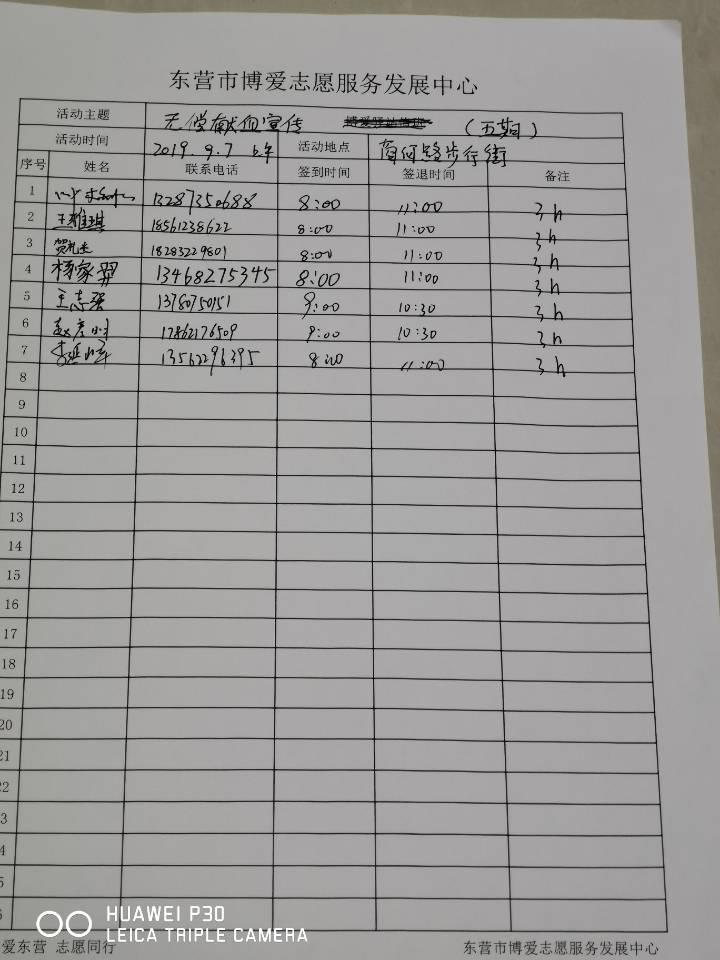 东营市博爱志愿服务发展中心
活动主题 无偿献血宣传 (五期)
活动时间 2019.9.7 上午 活动地点 商河路步行街
序号 姓名 联系电话 签到时间 签退时间 备注
1 13287350688 8:00 11:00 3h
2 王雅琪 18561238622 8:00 11:00 3h
3 18283229801 8:00 11:00 3h
4 杨家羿 13468275345 8:00 11:00 3h
5 王志强 13780750151 9:00 10:30 3h
6 17862176509 9:00 10:30 3h
7 13562296395 8:00 11:00 3h
8
9
10
11
12
13
14
15
16
17
18
19
20
21
22
3
4
5
6
HUAWEI P30
LEICA TRIPLE CAMERA
爱东营 志愿同行 东营市博爱志愿服务发展中心